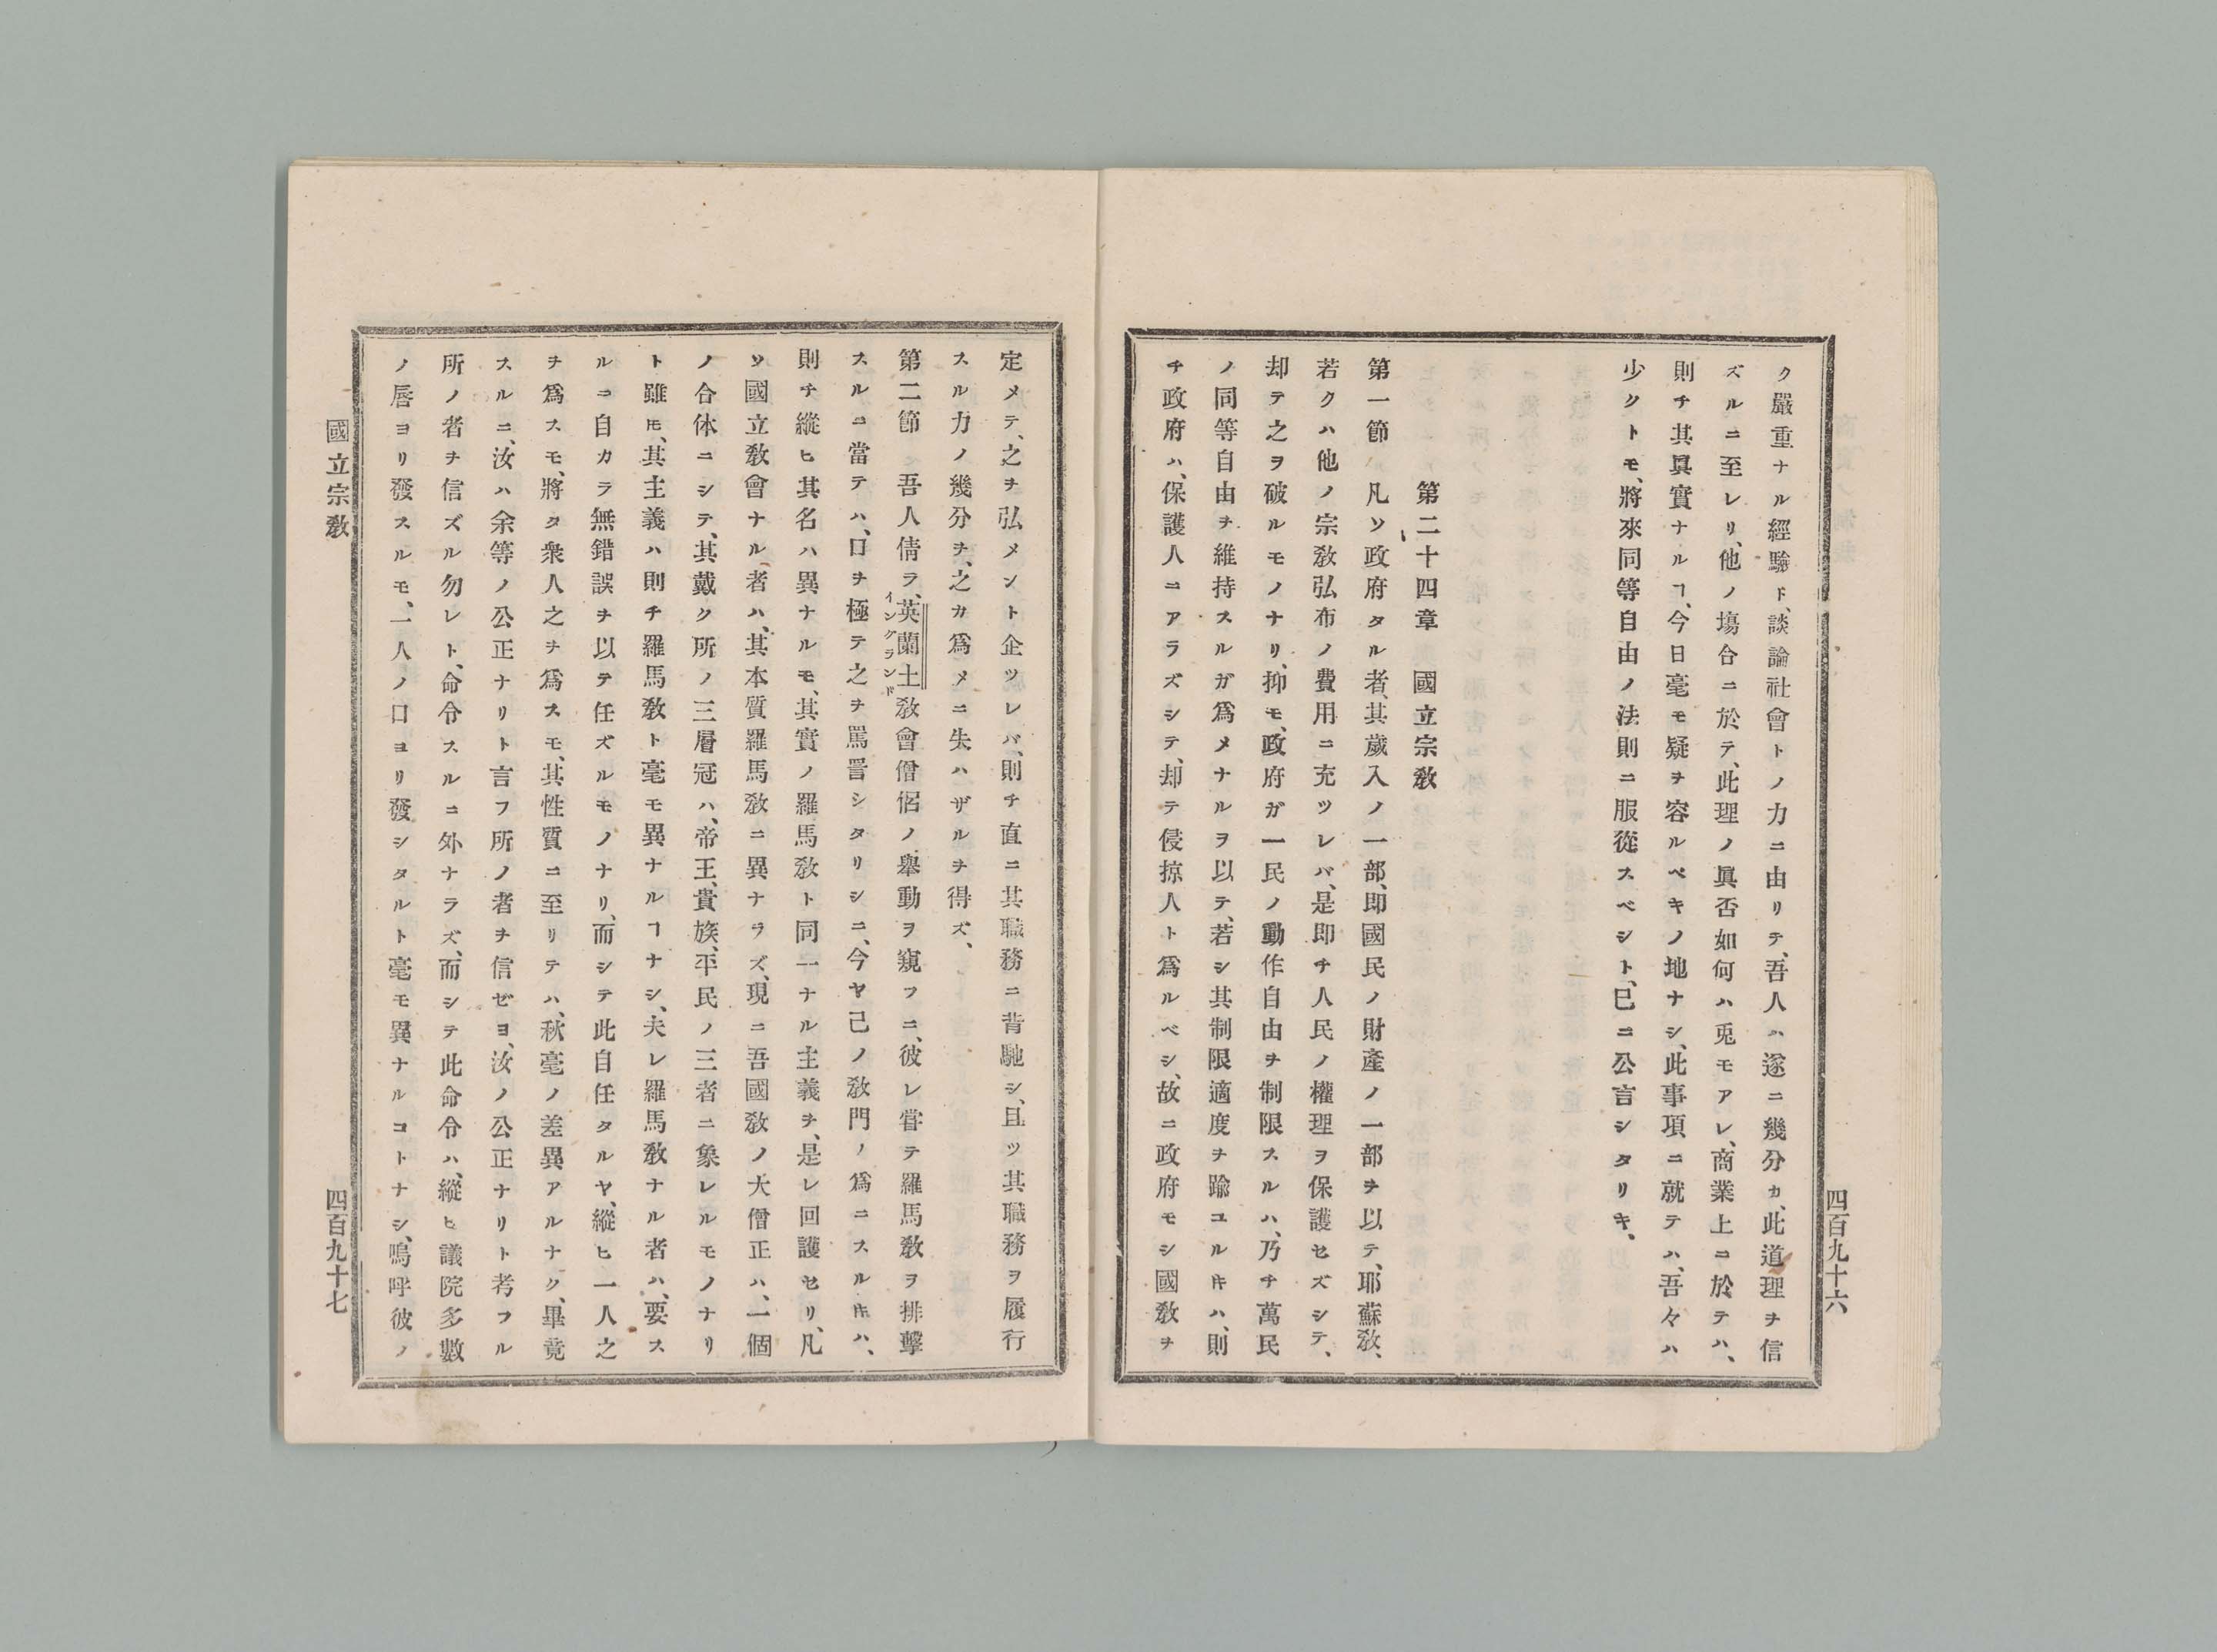 ク嚴重ナル經驗ト、談論社會トノ力ニ由リテ、吾人ハ遂ニ幾分カ、此道理ヲ信
ズルニ至レリ、他ノ塲合ニ於テ、此理ノ眞否如何ハ兎モアレ、商業上ニ於テハ、
則チ其眞實ナルヿ、今日毫モ疑ヲ容ルベキノ地ナシ、此事項ニ就テハ、吾々ハ
少クトモ、將來同等自由ノ法則ニ服從スベシト、已ニ公言シタリキ、
第二十四章　國立宗敎
第一節　凡ソ政府タル者、其歲入ノ一部、即國民ノ財產ノ一部ヲ以テ、耶蘇敎、
若クハ他ノ宗敎弘布ノ費用ニ充ツレバ、是即チ人民ノ權理ヲ保護セズシテ、
却テ之ヲ破ルモノナリ、抑モ、政府ガ一民ノ動作自由ヲ制限スルハ、乃チ萬民
ノ同等自由ヲ維持スルガ爲メナルヲ以テ、若シ其制限適度ヲ踰ユルキハ、則
チ政府ハ、保護人ニアラズシテ、却テ侵掠人ト爲ルベシ、故ニ政府モシ國敎ヲ
四百九十六
定メテ、之ヲ弘メント企ツレバ、則チ直ニ其職務ニ背馳シ、且ツ其職務ヲ履行
スル力ノ幾分ヲ、之カ爲メニ失ハザルヲ得ズ、
第二節　吾人倩ラ、英蘭土敎會僧侶ノ舉動ヲ窺フニ、彼レ甞テ羅馬敎ヲ排擊
インクランド
スルニ當テハ、口ヲ極テ之ヲ罵詈シタリシニ、今ヤ己ノ敎門ノ爲ニスルキハ、
則チ縱ヒ其名ハ異ナルモ、其實ノ羅馬敎ト同一ナル主義ヲ、是レ回護セリ、凡
ソ國立敎會ナル者ハ、其本質羅馬敎ニ異ナラズ、現ニ吾國敎ノ大僧正ハ、一個
ノ合体ニシテ、其戴ク所ノ三層冠ハ、帝王、貴族、平民ノ三者ニ象レルモノナリ
ト雖モ、其主義ハ則チ羅馬敎ト毫モ異ナルヿナシ、夫レ羅馬敎ナル者ハ、要ス
ルニ自カラ無錯誤ヲ以テ任ズルモノナリ、而シテ此自任タルヤ、縱ヒ一人之
ヲ爲スモ、將タ衆人之ヲ爲スモ、其性質ニ至リテハ、秋毫ノ差異アルナク、畢竟
スルニ、汝ハ余等ノ公正ナリト言フ所ノ者ヲ信ゼヨ、汝ノ公正ナリト考フル
所ノ者ヲ信ズル勿レト、命令スルニ外ナラズ、而シテ此命令ハ、縱ヒ議院多數
ノ唇ヨリ發スルモ、一人ノ口ヨリ發シタルト毫モ異ナルコトナシ、嗚呼彼ノ
國立宗敎
四百九十七